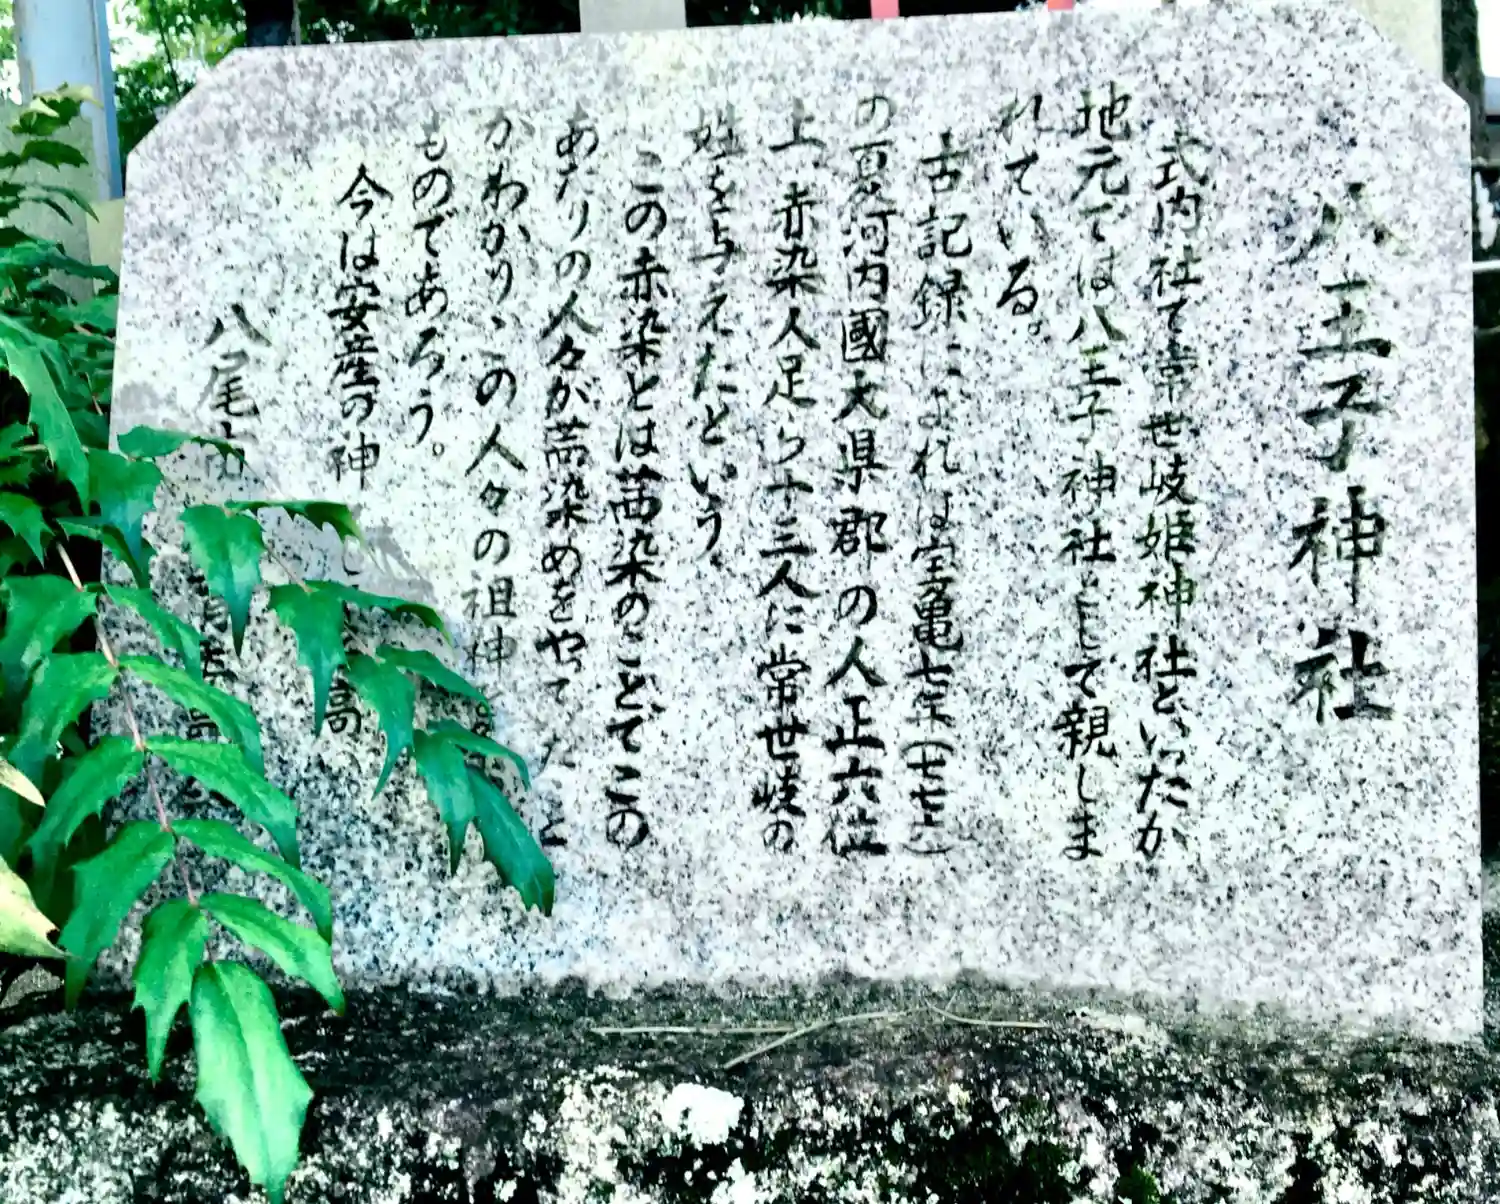 八王子神社
式内社で常世岐姫神社といったが
地元では八王子神社として親しま
れている。
古記録によれば宝亀七年(七七七)
の夏河内國大県郡の人正六位
上、赤染人足ら十三人に常世岐の
姓を与えたという。
この赤染とは茜染のことでこの
あたりの人々が茜染めをやってたこと
がわかり、この人々の祖神
ものであろう。
今は安産の神 高
八尾市